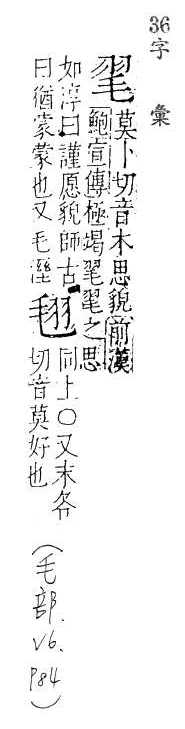 36字 彙
毣
莫卜切音木思貌前漢
鮑宣傳極竭毣毣之思
如淳曰謹愿貌師古
曰猶蒙蒙也又毛溼
同上〇又末各
切音莫好也
(毛部.V6.P84)